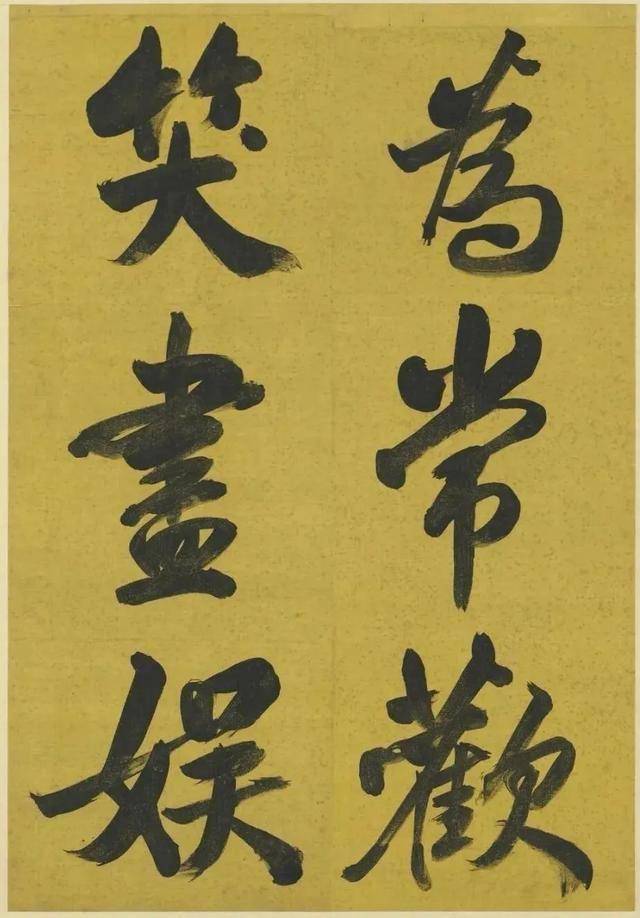 為常歡
笑盡娱